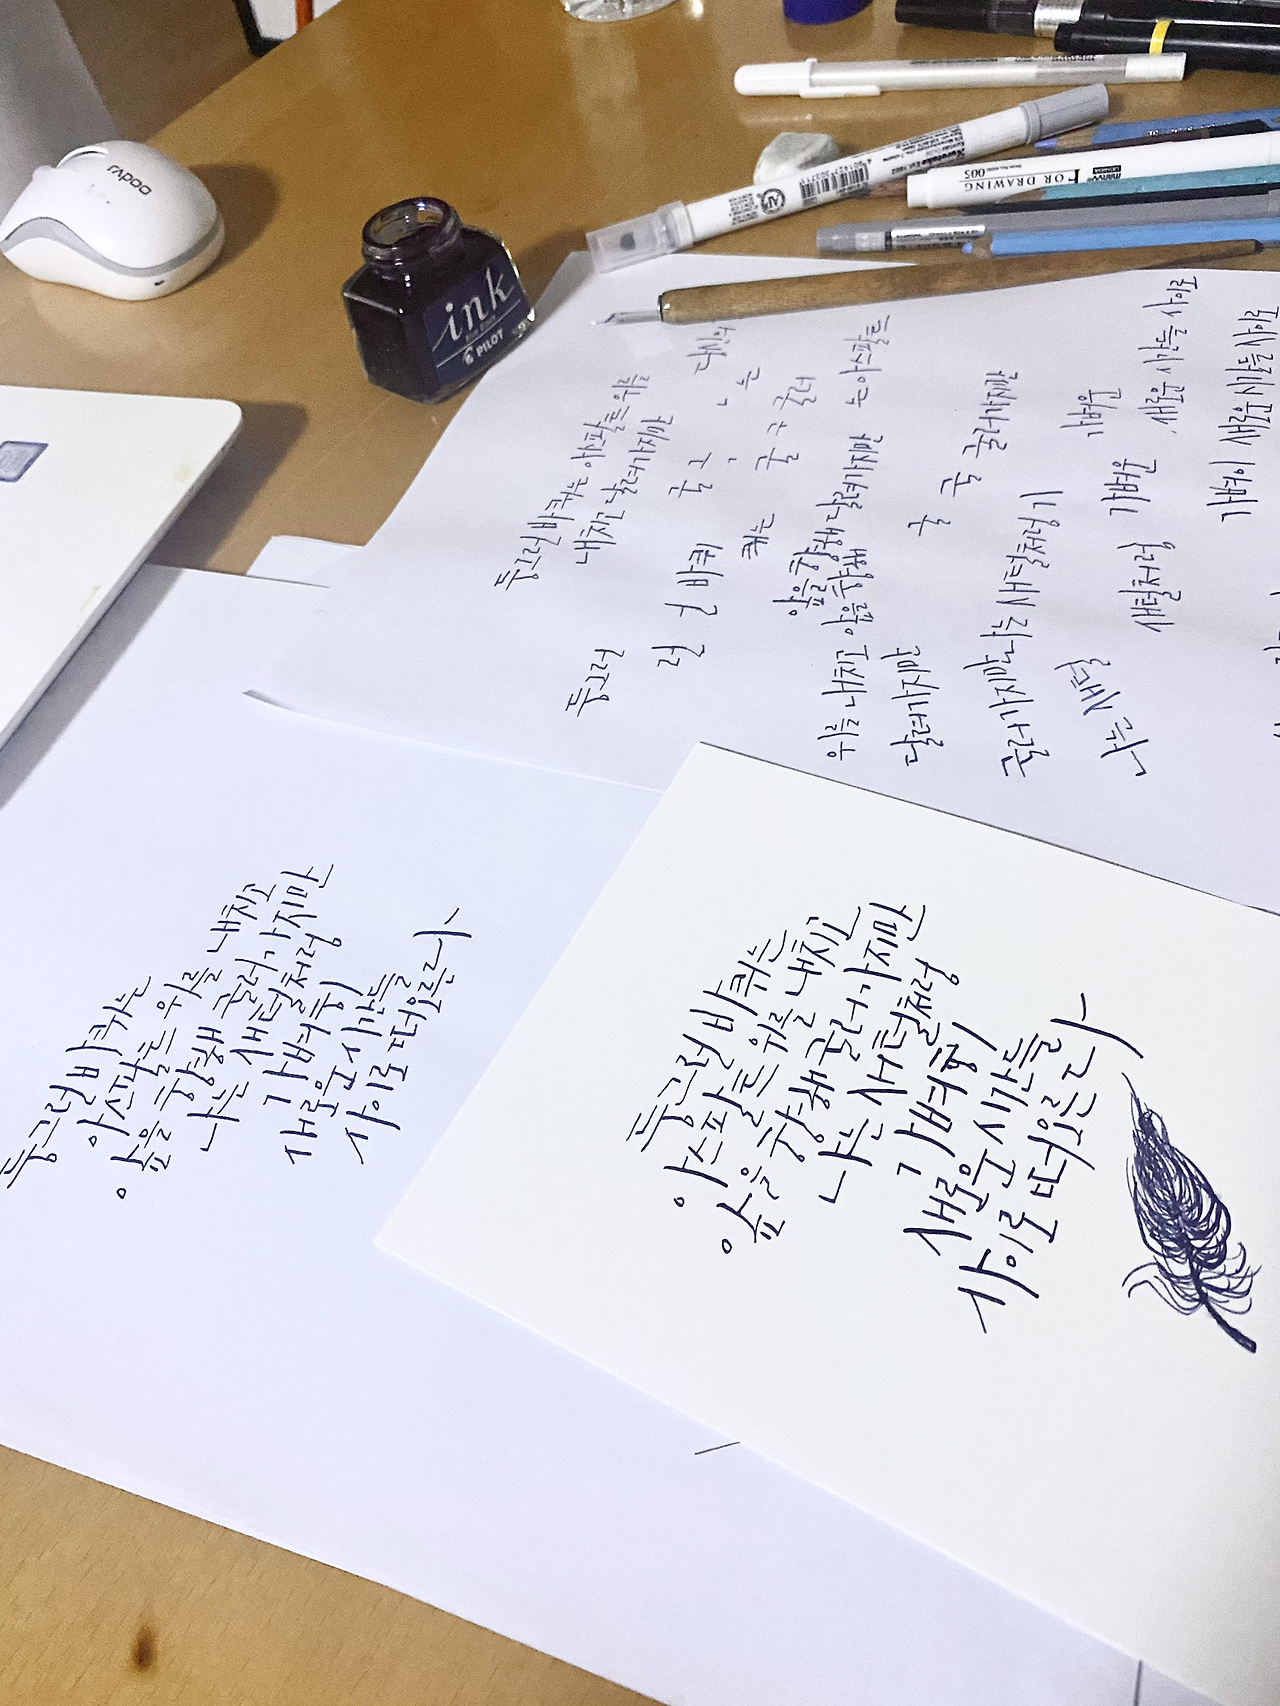 rapoo
ink
PILOT
Kuretake
FOR DRAWING
005
둥그런 바퀴는 아스팔트 위를
내치고 달려가지만
둥그러
런 런 바퀴
퀴는
앞을 향해 달려가지만 는 아스팔트
위를 내치고 앞을 향해
달려가지만
굴 굴 굴러가지만
굴러가지만 나는 새털처럼 기
나는 새털
새털처럼 가벼운 가벼운
새로운 시간들 사이로
가벼이 새로운 시간들 사이로
둥그런 바퀴는
아스팔트 위를 내치고
앞을 향해 굴러가지만
나는 새털처럼
가벼이
새로운 시간들
사이로 떠오른다
둥그런 바퀴는
아스팔트 위를 내치고
앞을 향해 굴러가지만
나는 새털처럼
가벼이
새로운 시간들
사이로 떠오른다